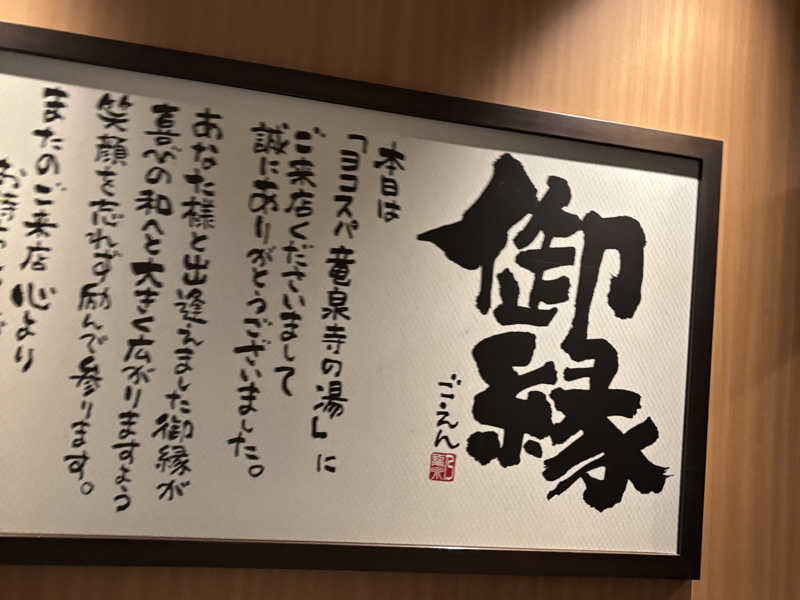 御縁
ご・えん
本日は
「ヨコスパ竜泉寺の湯」に
ご来店くださいまして
誠にありがとうございました。
あなた様と出逢えました御縁が
喜びの和へと大きく広がりますよう
笑顔を忘れず励んで参ります。
またのご来店心より
お待ち